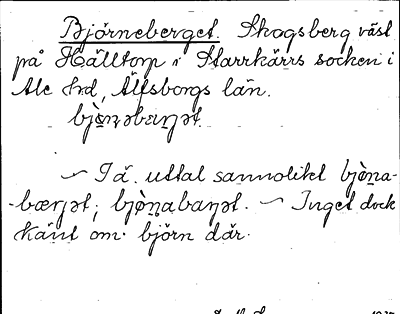 Björneberget. Skogsberg väst
på Hälltorp i Starrkärrs socken i
Ale hd, Älfsborgs län.
bjò̤ṇəbæŋət.
∽ I ä. uttal sannolikt bjò̤ṇa-
-bærjət; bjò̤ṇabarjət. ∽ Inget dock
känt om björn där.